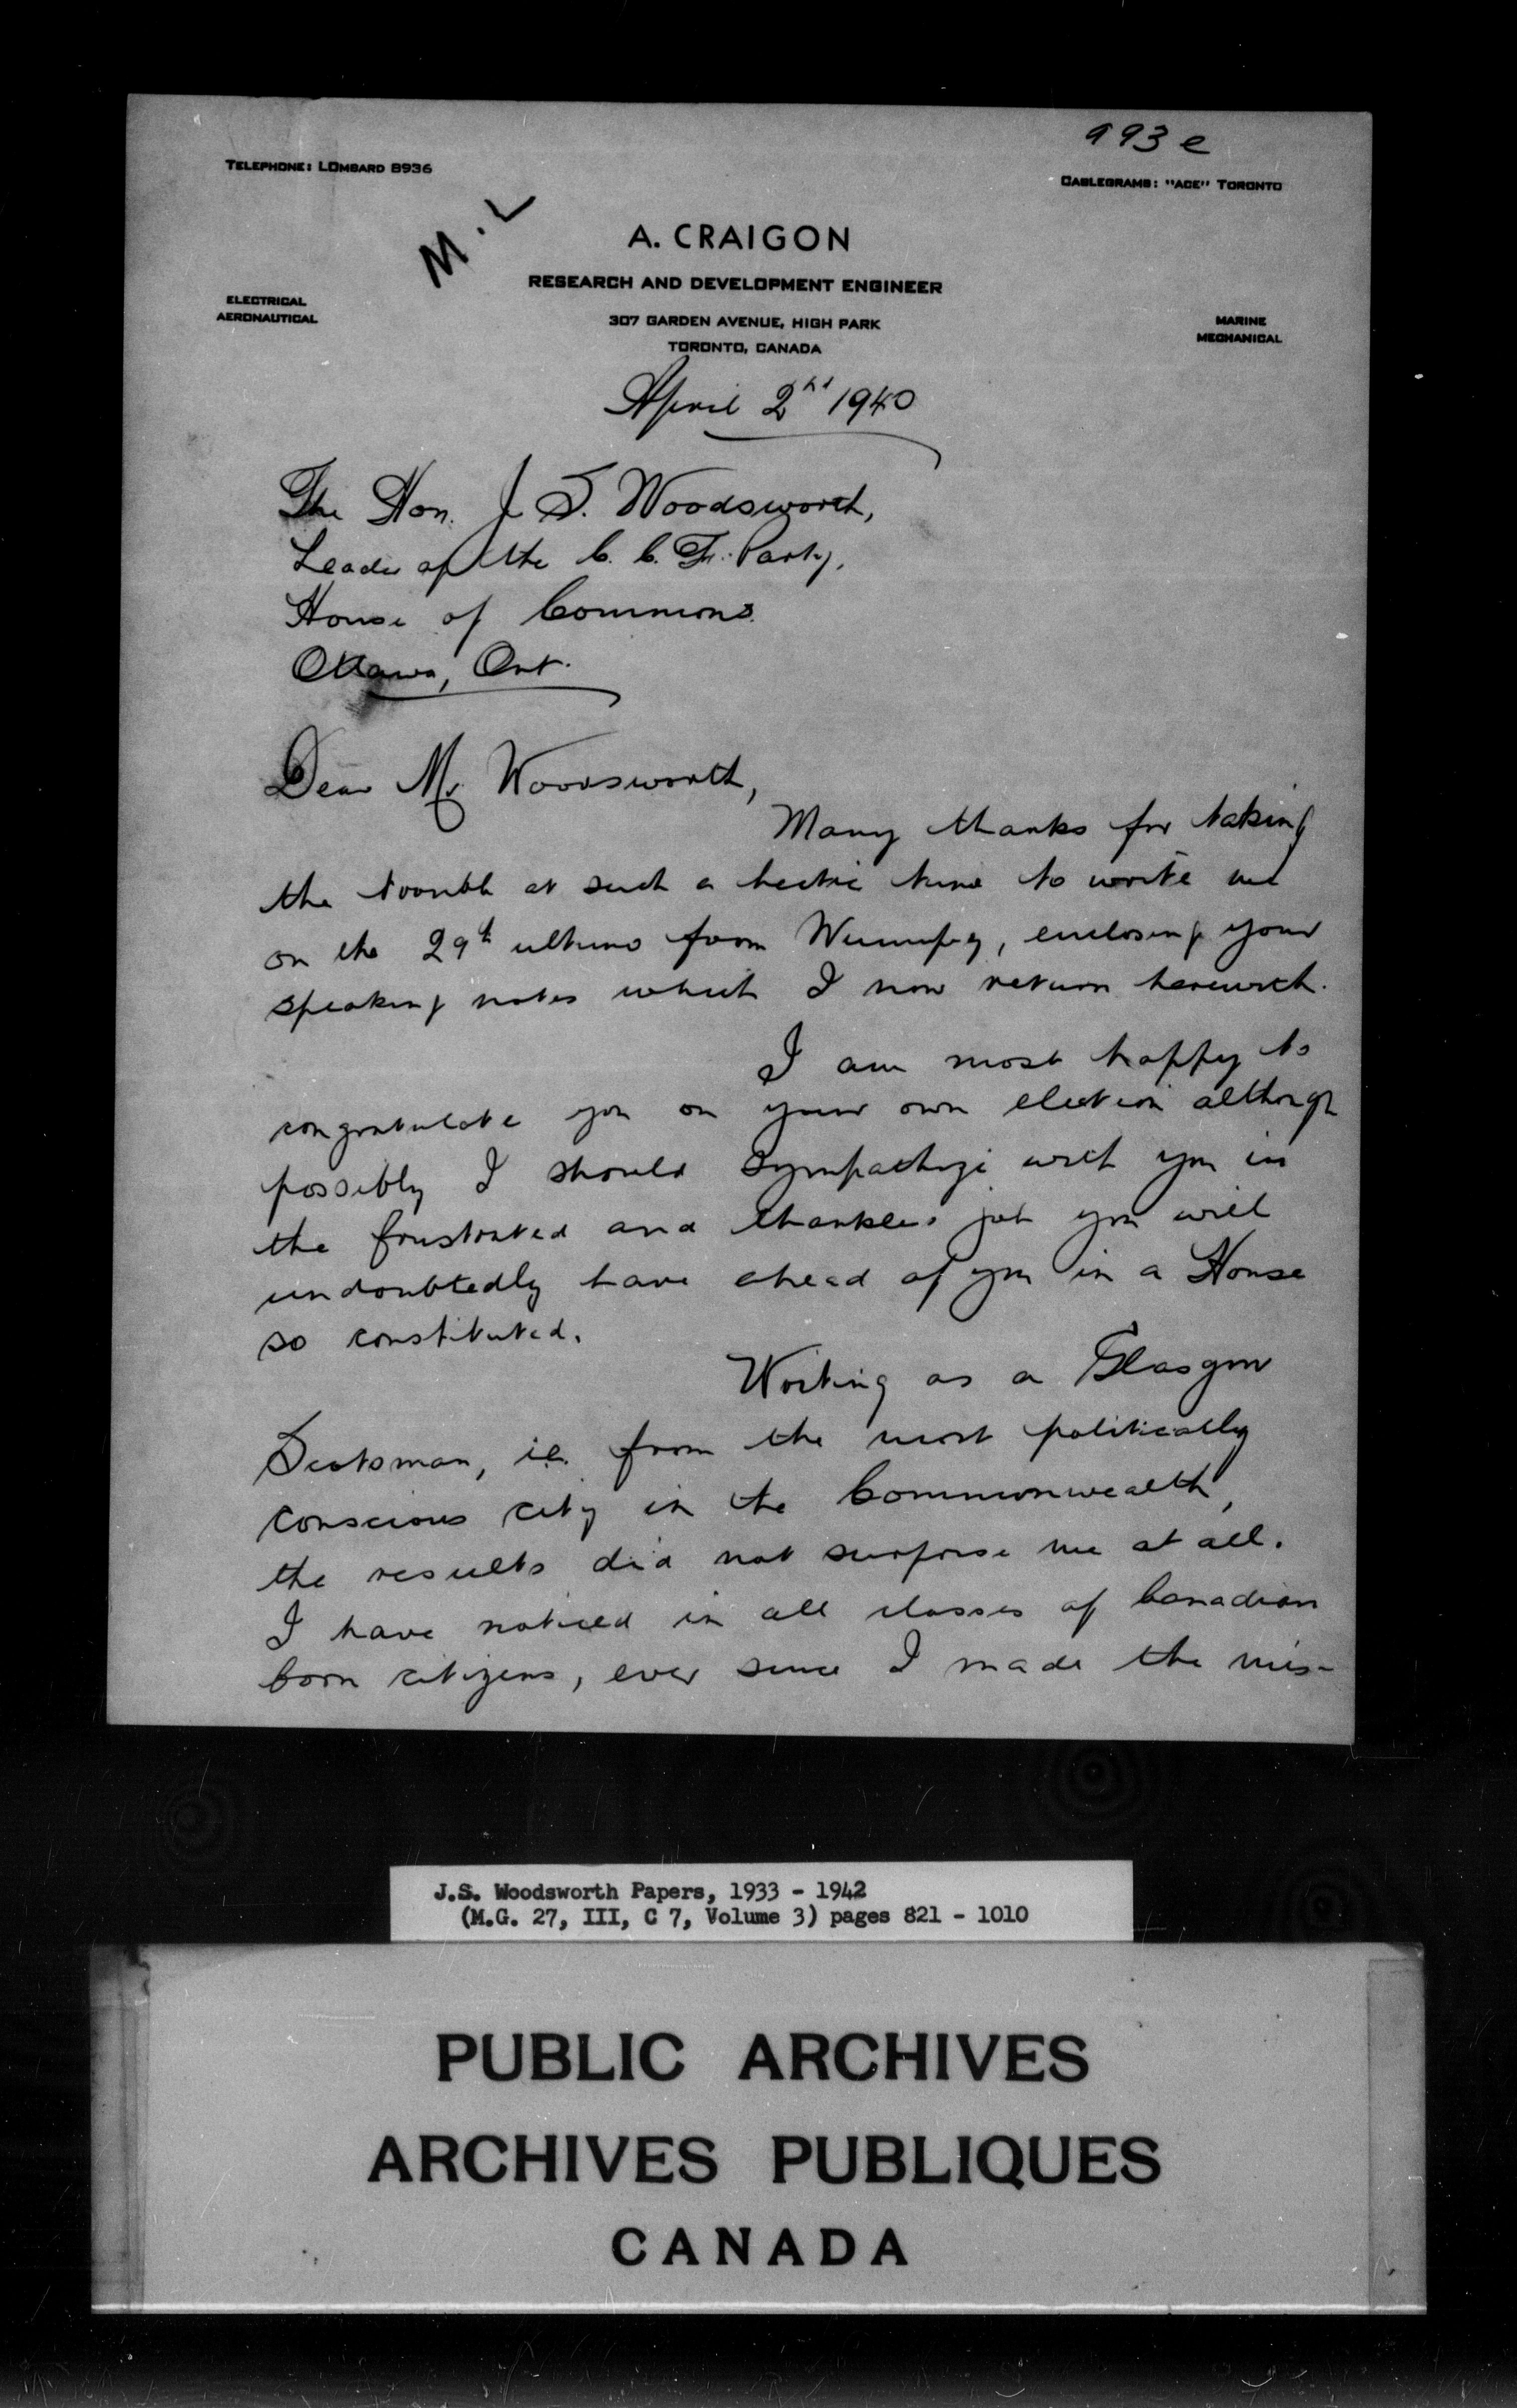 993 e
TELEPHONE: LOMBARD 8936
CABLEGRAMS: "ACE" TORONTO
M. L
A. CRAIGON
RESEARCH AND DEVELOPMENT ENGINEER
ELECTRICAL
AERONAUTICAL
307 GARDEN AVENUE, HIGH PARK
TORONTO, CANADA
MARINE
MECHANICAL
April 2nd 1940
The Hon. J. S. Woodsworth,
Leader of the C. C. F. Party,
House of Commons.
Ottawa, Ont.
Dear Mr. Woodsworth,
Many thanks for taking
the trouble at such a hectic time to write me
on the 29th ultimo from Winnipeg, enclosing your
speaking notes which I now return herewith.
I am most happy to
congratulate you on your own election although
possibly I should sympathize with you in
the frustrated and thankless job you will
undoubtedly have ahead of you in a House
so constituted.
Writing as a Glasgow
Scotsman, i.e. from the most politically
conscious city in the Commonwealth,
the results did not surprise me at all.
I have noticed in all classes of Canadian
born citizens, ever since I made the mis-
J.S. Woodsworth Papers, 1933 - 1942
(M.G. 27, III, C 7, Volume 3) pages 821 - 1010
PUBLIC ARCHIVES
ARCHIVES PUBLIQUES
CANADA